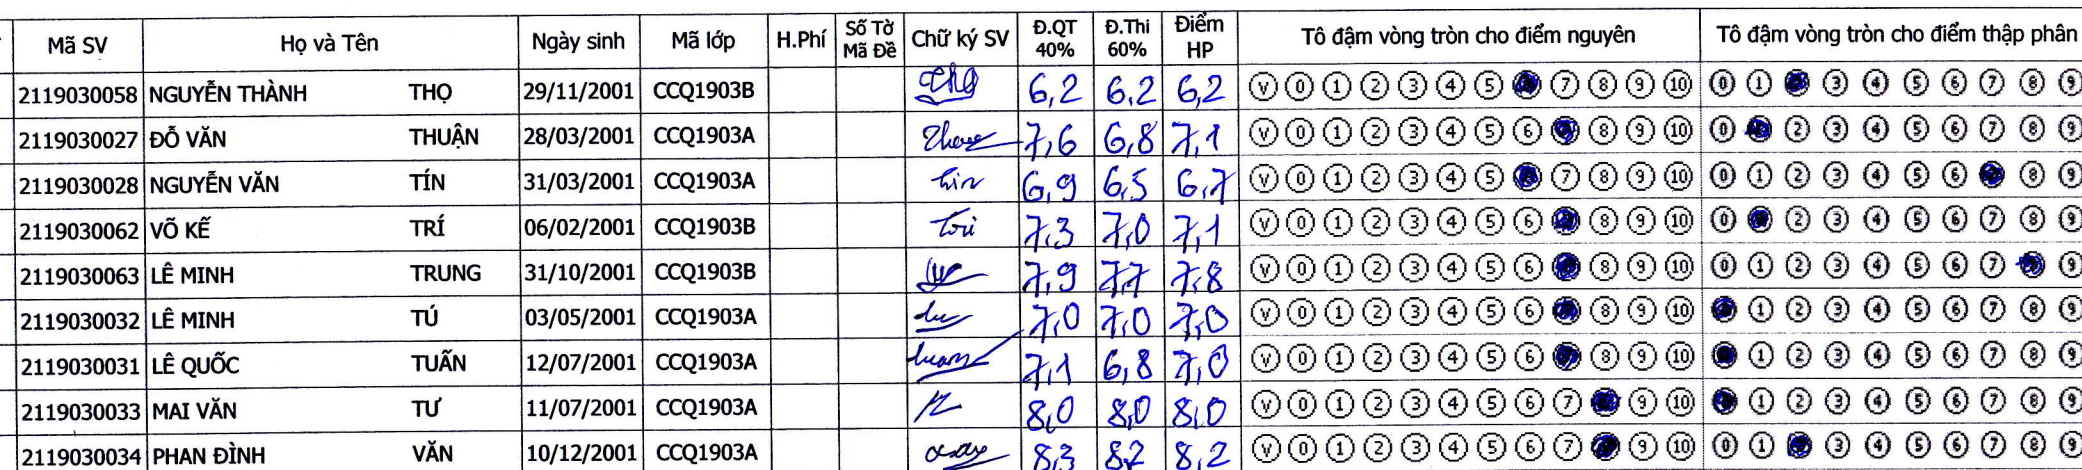 Mã SV Họ và Tên Ngày sinh Mã lớp H.Phí Số Tờ Mã Đề Chữ ký SV Đ.QT 40% Đ.Thi 60% Điểm HP Tô đậm vòng tròn cho điểm nguyên Tô đậm vòng tròn cho điểm thập phân
2119030058 NGUYỄN THÀNH THỌ 29/11/2001 CCQ1903B 6,2 6,2 6,2 V 0 1 2 3 4 5 7 8 9 10 0 1 3 4 5 6 7 8 9
2119030027 ĐỖ VĂN THUẬN 28/03/2001 CCQ1903A 7,6 6,8 7,1 V 0 1 2 3 4 5 6 8 9 10 0 2 3 4 5 6 7 8 9
2119030028 NGUYỄN VĂN TÍN 31/03/2001 CCQ1903A 6,9 6,5 6,7 V 0 1 2 3 4 5 7 8 9 10 0 1 2 3 4 5 6 8 9
2119030062 VÕ KẾ TRÍ 06/02/2001 CCQ1903B 7,3 7,0 7,1 V 0 1 2 3 4 5 6 8 9 10 0 2 3 4 5 6 7 8 9
2119030063 LÊ MINH TRUNG 31/10/2001 CCQ1903B 7,9 7,7 7,8 V 0 1 2 3 4 5 6 8 9 10 0 1 2 3 4 5 6 7 9
2119030032 LÊ MINH TÚ 03/05/2001 CCQ1903A 7,0 7,0 7,0 V 0 1 2 3 4 5 6 8 9 10 1 2 3 4 5 6 7 8 9
2119030031 LÊ QUỐC TUẤN 12/07/2001 CCQ1903A 7,1 6,8 7,0 V 0 1 2 3 4 5 6 8 9 10 1 2 3 4 5 6 7 8 9
2119030033 MAI VĂN TƯ 11/07/2001 CCQ1903A 8,0 8,0 8,0 V 0 1 2 3 4 5 6 7 9 10 1 2 3 4 5 6 7 8 9
2119030034 PHAN ĐÌNH VĂN 10/12/2001 CCQ1903A 8,3 8,2 8,2 V 0 1 2 3 4 5 6 7 9 10 0 1 3 4 5 6 7 8 9